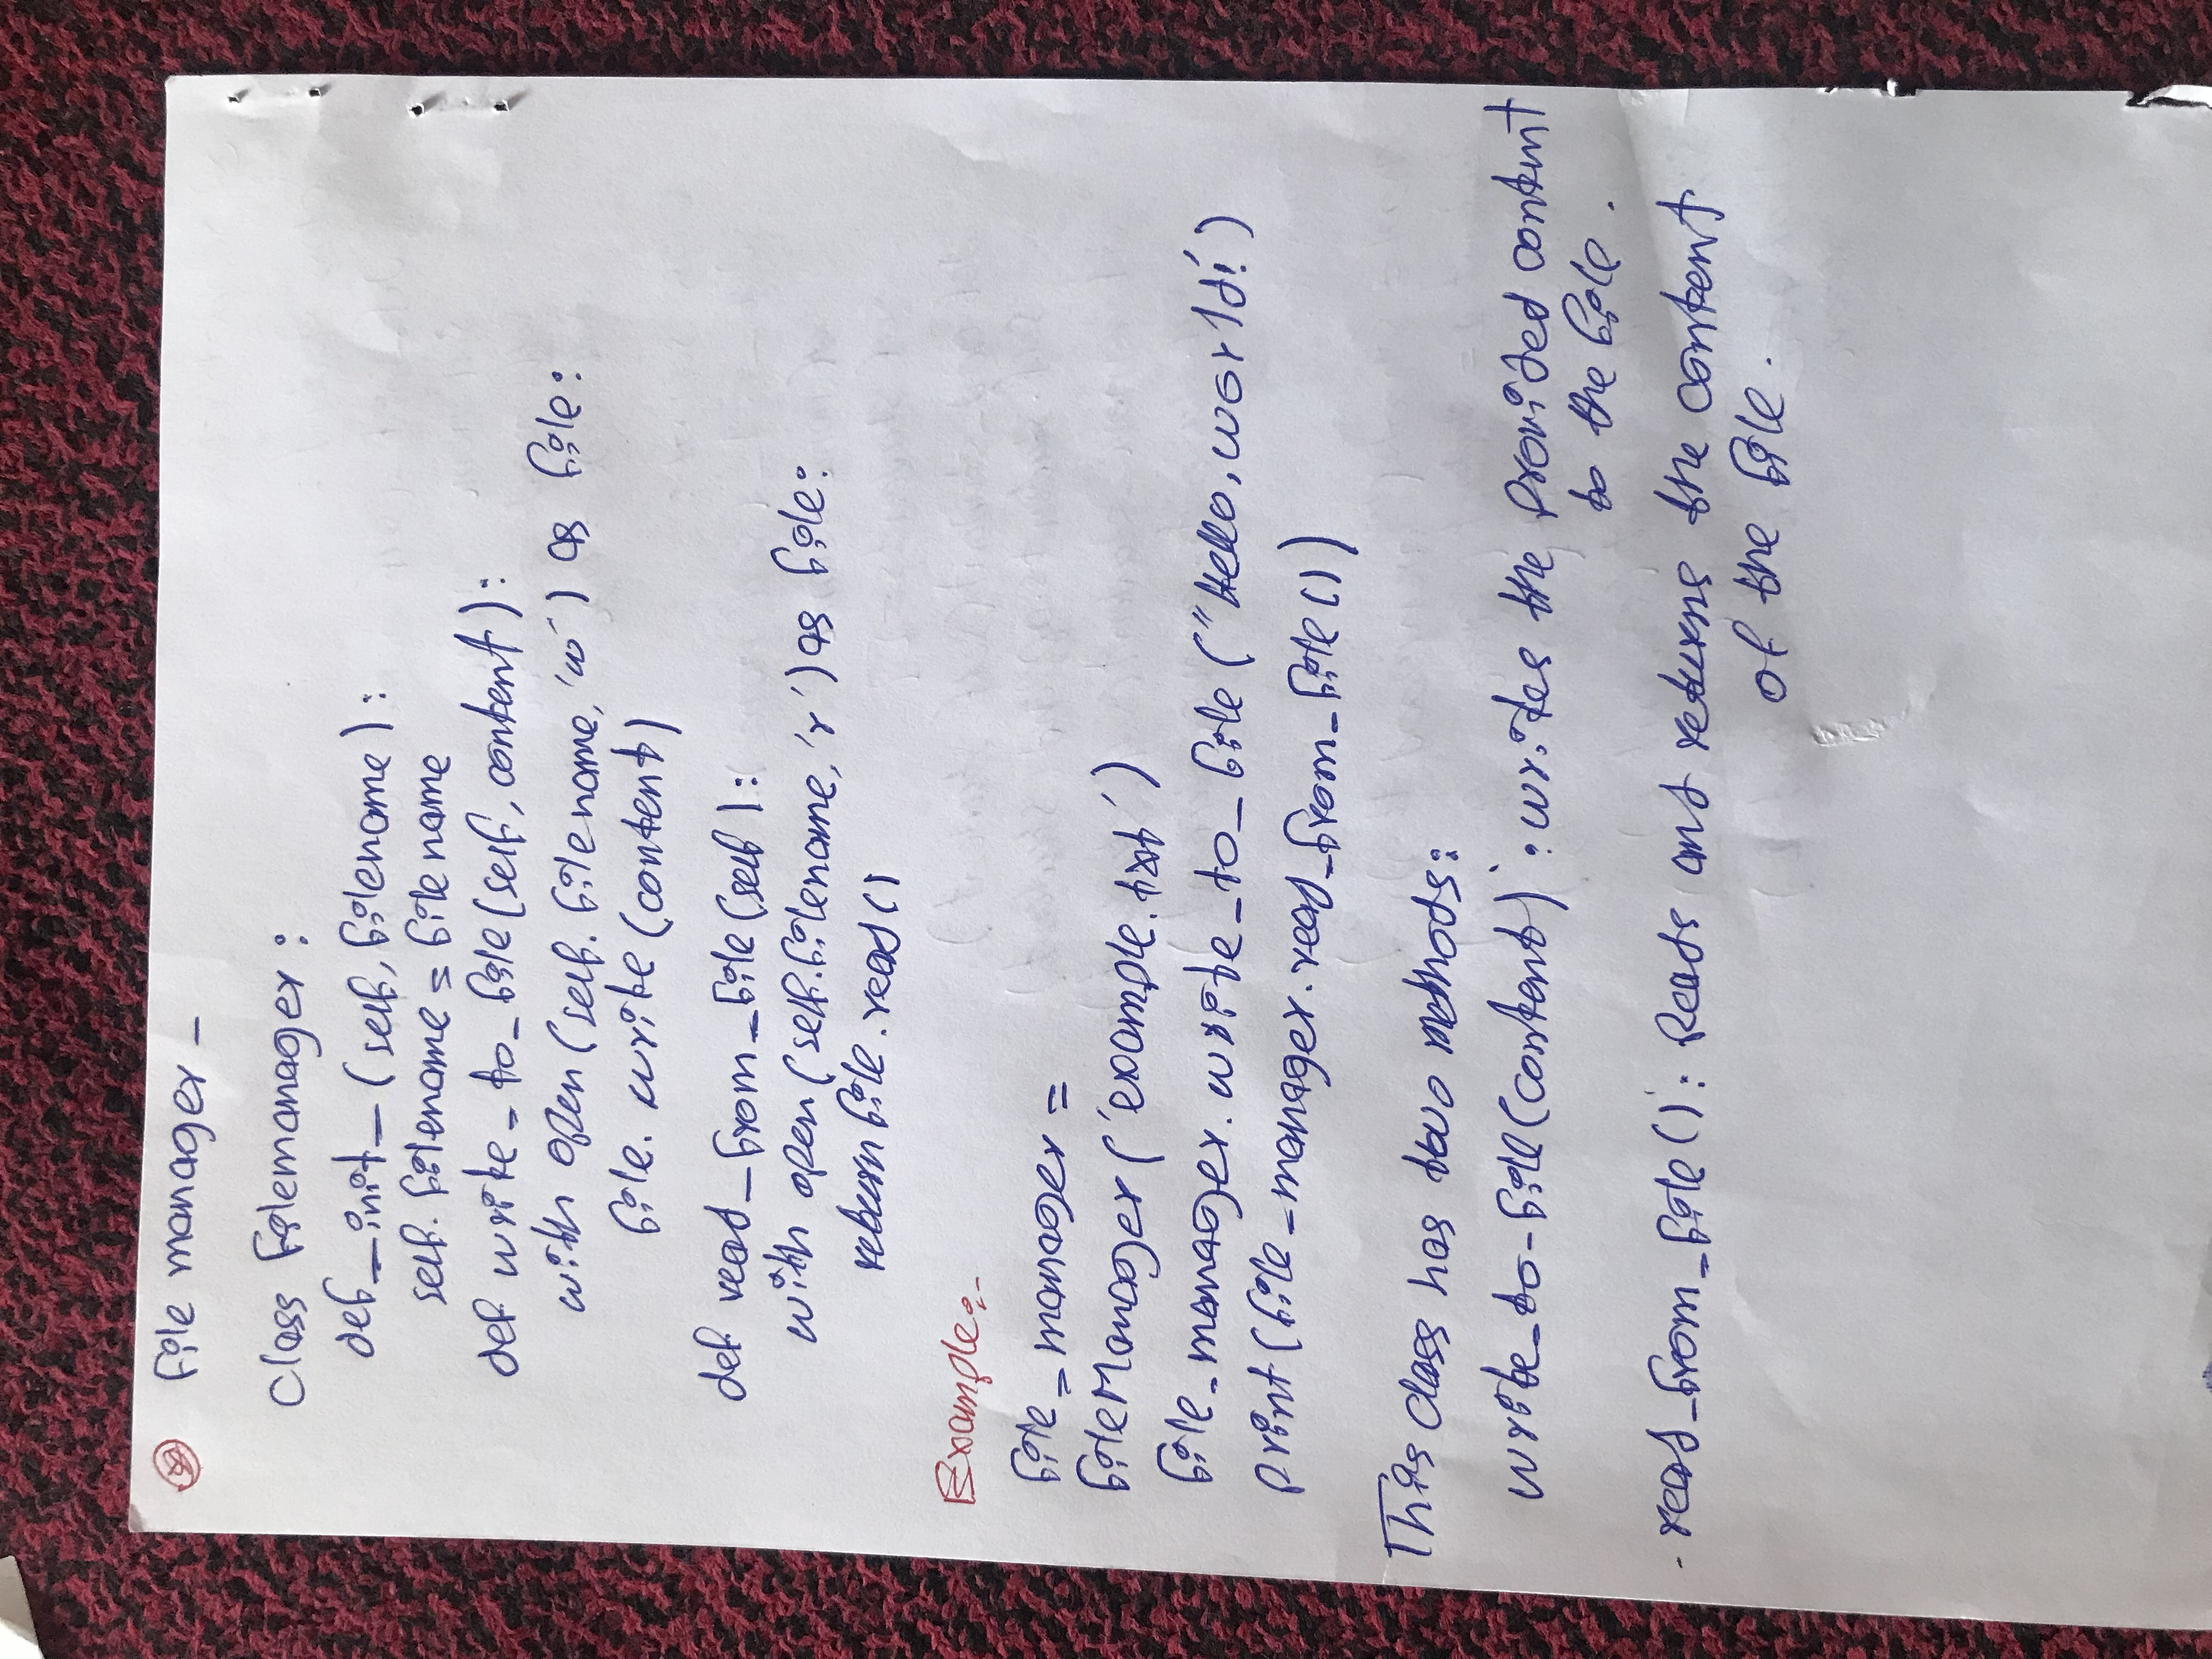 File manager -
class Filemanager:
def_init_(self, filename):
self. filename = filename
def write_to_file(self, content):
with open (self. filename, 'w') as file:
file. write (content)
def read_from_file(self):
with open (self.filename, 'r') as file:
return file.read()
Example:-
file_manager =
fileManager ('example.txt')
file_manager.write_to_file ("Hello, world!')
print(file_manager.read_from_file())
This class has two methods:
write_to-file(content)': writes the provided content
to the file.
- read_from_file()': Reads and returns the content
of the file.